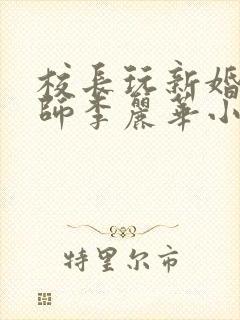 校長玩新婚
師李麗華小
特里尔市